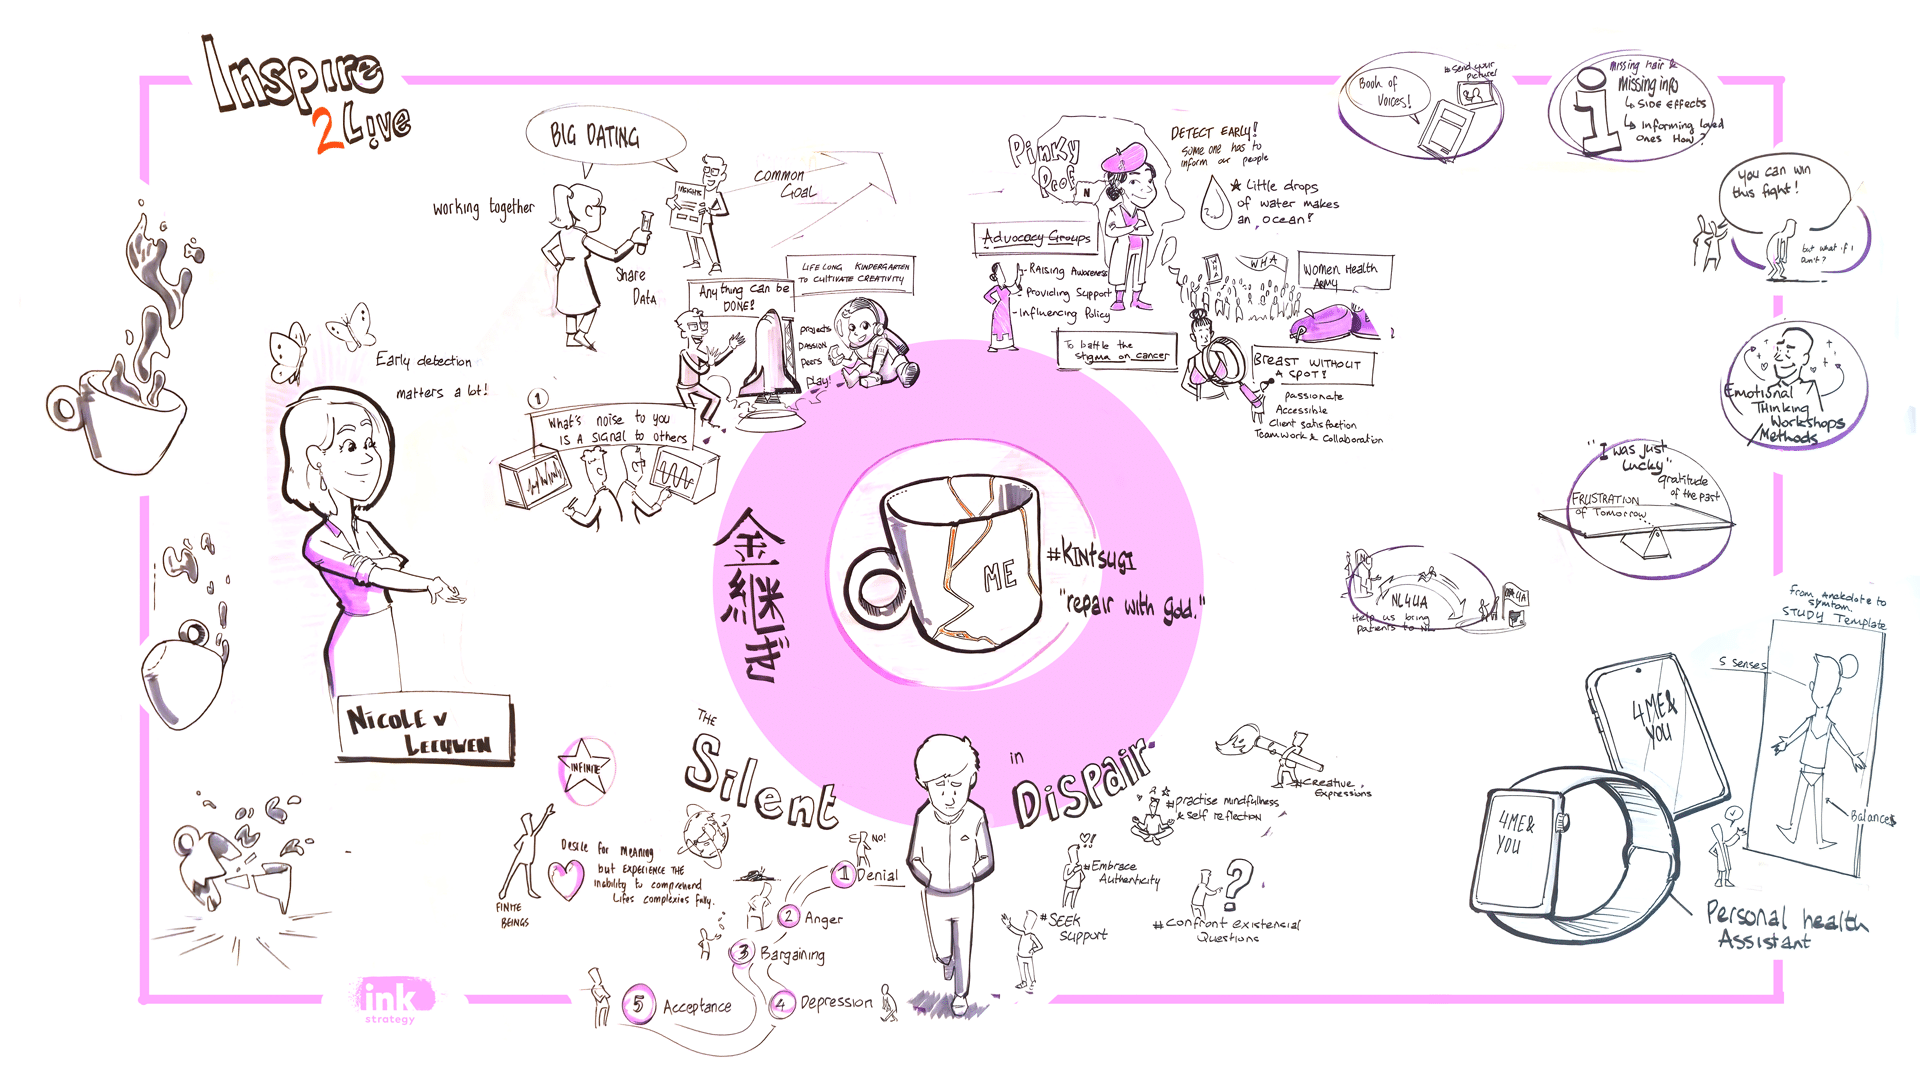 Inspire
2Live
BIG DATING
working together
Share
Data
INSIGHTS
COMMON
GOAL
Anything can be
DONE!
LIFE LONG KINDERGARTEN
TO CULTIVATE CREATIVITY
projects
passion
peers
play!
1
What's noise to you
is a signal to others
Early detection
matters a lot!
Nicole v
Leeuwen
Pinky
Prof
N
DETECT EARLY!
Some one has to
inform our people
★ Little drops
of water makes
an ocean!
Advocacy Groups
- Raising Awareness
- Providing Support
- Influencing Policy
To battle the
stigma on cancer
WHA
WHA
Women Health
Army
Breast without
a spot!
passionate
Accessible
Client satisfaction
Teamwork & Collaboration
Book of
Voices!
#Send your
picture!
i
Missing hair &
Missing info
↳ Side effects
↳ Informing loved
ones How?
You can win
this fight!
but what if I
don't?
Emotional
Thinking
Workshops
/Methods
"I was just
lucky"
gratitude
of the past
Frustration
of Tomorrow
NL4UA
Help us bring
patients to NL
金継ぎ
ME
#Kintsugi
"repair with gold."
From Anekdote to
symtom.
STUDY Template
5 senses
Balances
4ME&
YOU
4ME&
YOU
Personal health
Assistant
THE
Silent
in
Dispair
INFINITE
FINITE
BEINGS
Desire for meaning
but experience the
inability to comprehend
Lifes complexities fully.
NO!
1 Denial
2 Anger
3 Bargaining
4 Depression
5 Acceptance
#Creative
Expressions
#practise mindfulness
& self reflection
#Embrace
Authenticity
#SEEK
support
#Confront existencial
Questions
ink
strategy